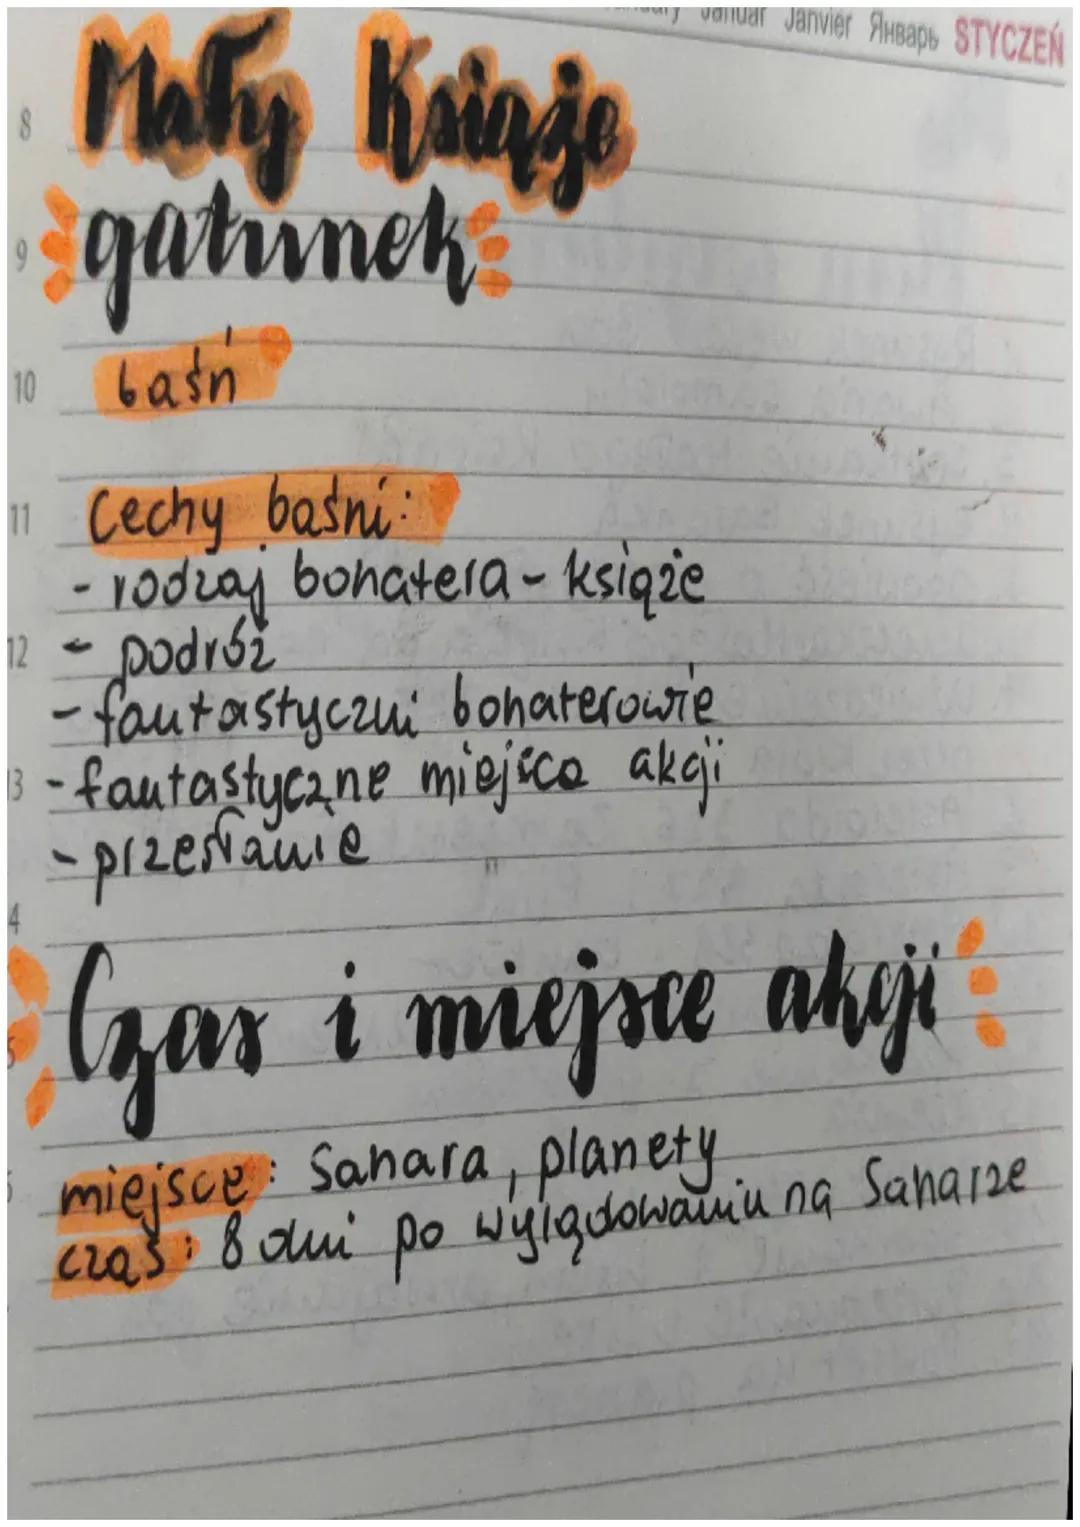 Januar Janvier Январь STYCZEŃ
8 Mały Książe
9 gatunek
10 baśń
11 Cechy baśni:
- rodzaj bohatera - książe
12 - podróż
- fantastyczni bohaterowie
13 - fantastyczne miejsca akcji
- przesłanie
Czas i miejsce akcji
miejsce: Sahara, planety
czas: 8 dni po wylądowaniu na Saharze